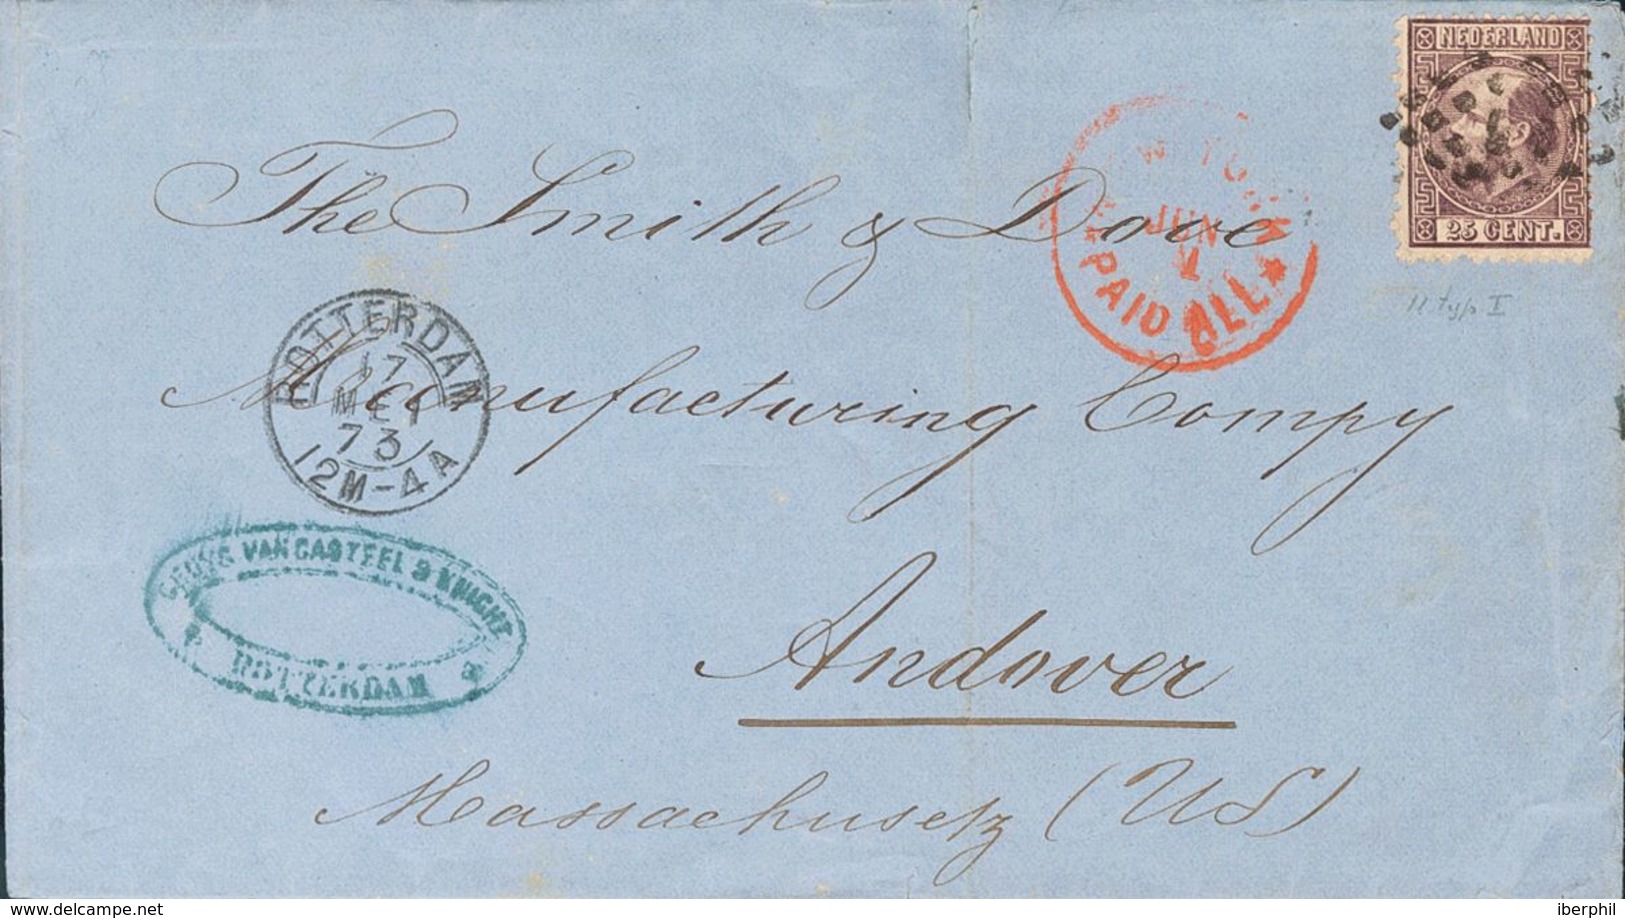 NEDERLAND
25 CENT.
YORK
JUN
PAID ALL
11 typ I
The Smith & Dove
Manufacturing Compy
Andover
Massachusetz (US)
ROTTERDAM
17
MEI
73
12M-4A
VAN CASTEEL & KNIGHT
ROTTERDAM
delcampe.net
iberphil